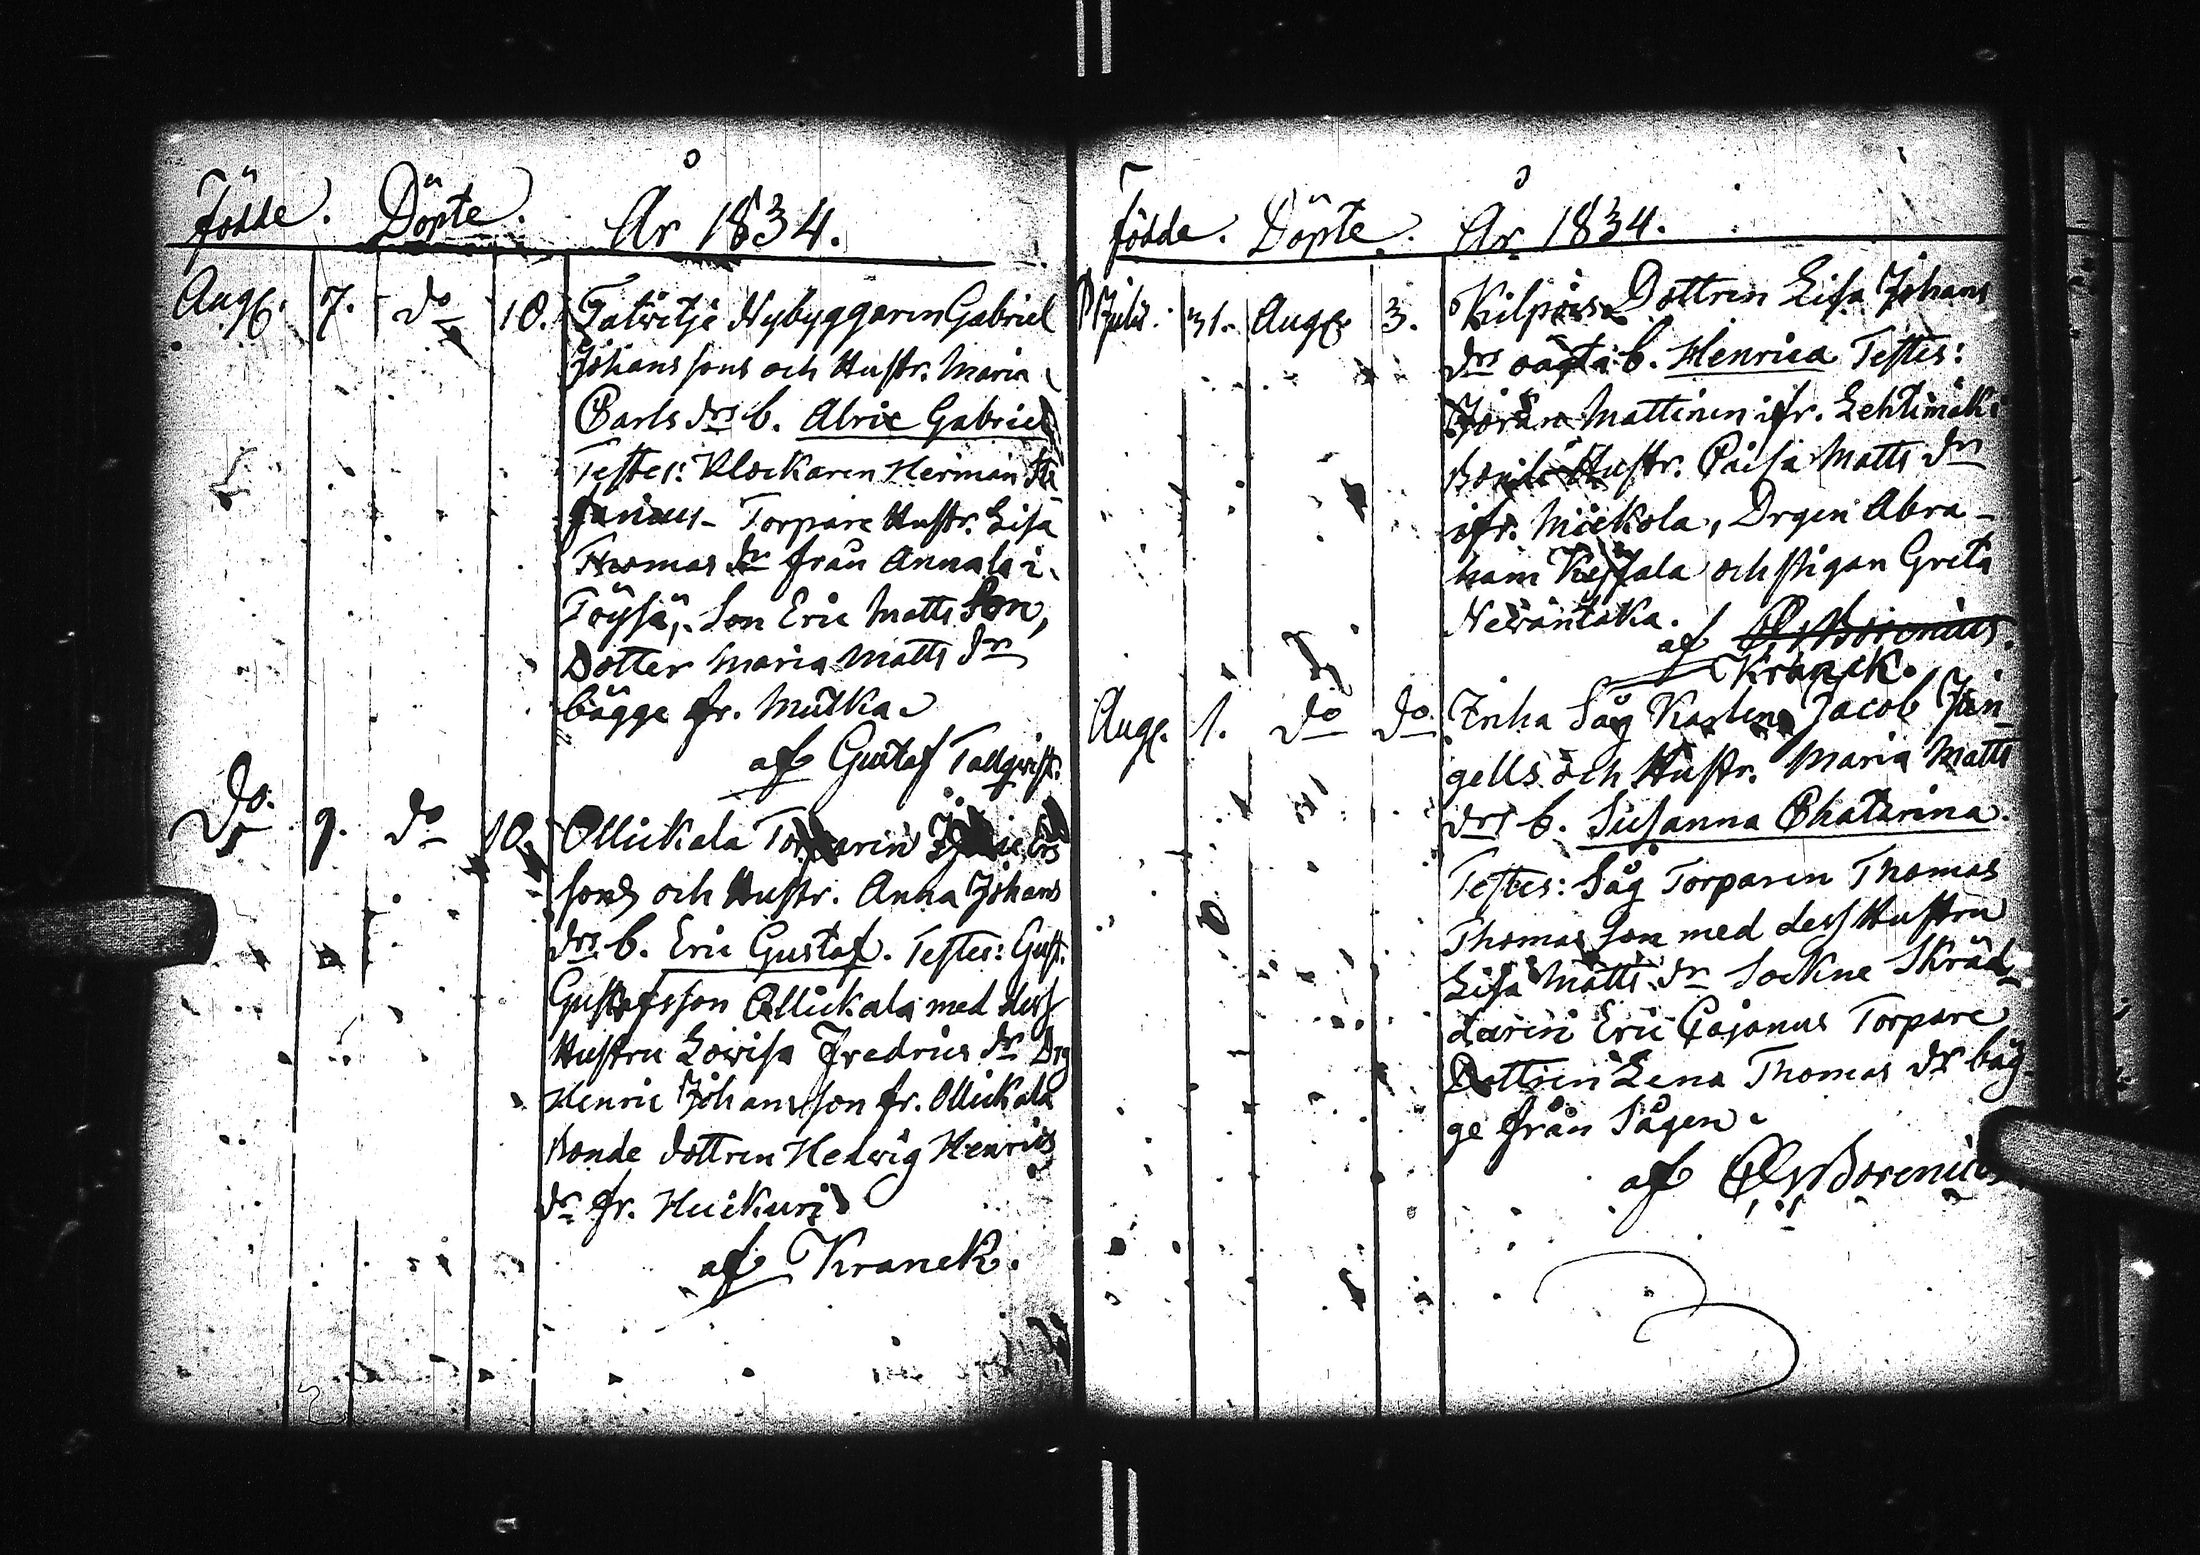 Födde. Döpte. År 1834.
Aug. 7. do 10. Talwitje Nybyggaren Gabriel
Johanssons och Hustr. Maria
Carls drs b. Alric Gabriel
Testes: Klockaren Herman
Torpare Hustr. Lisa
Thomas dr från Annala i
Töysä, Son Eric Matts Son,
Dotter Maria Matts dr
bägge fr. Mutka
af Gustaf Tallqvist.
do. 9. do 10. Ollickala Torparen
sons och Hustr. Anna Johans
drs b. Eric Gustaf. Testes: Gust.
Gustafsson Ollickala med dess
Hustru Lowisa Fredrics dr Drg
Henric Johansson fr. Ollickala
Bonde dottren Hedwig Henrics
dr fr. Huckuri
af Kranck.
Födde. Döpte. År 1834.
Julii. 31. Aug. 3. Dottren Lisa Johans
drs oägta b. Henrica Testes:
Jöran Mattinen ifr. Lehtimäki
Hustr. Caisa Matts dr
ifr. Mickola, Drgen Abra-
ham och Pigan Greta
af Borenius.
Kranck.
Aug. 1. do do. Inha Såg Karlens Jacob Jun-
gells och Hustr. Maria Matts
drs b. Susanna Chatarina.
Testes: Såg Torparen Thomas
Thomas son med dess Hustru
Lisa Matts dr Sockne Skräd-
daren Eric Cajanus Torpare
Dottren Lena Thomas dr bäg-
ge från Sågen
af Borenius